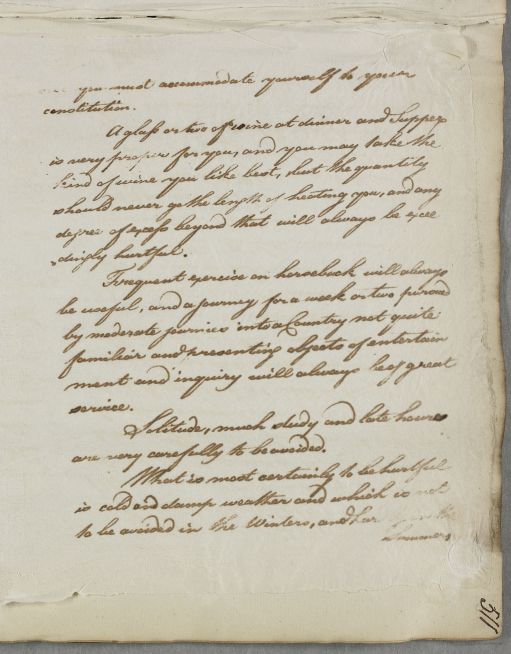 you must accommodate yourself to your
constitution.
A glass or two of wine at dinner and Supper
is very proper for you, and you may take the
kind of wine you like best, but the quantity
should never go the length of heating you, and any
degree of excess beyond that will always be excee
dingly hurtful.
Frequent exercise on horseback will always
be useful, and a journey for a week or two pursued
by moderate journies into a Country not quite
familiar and presenting objects of entertain
ment and inquiry will always be of great
service.
Solitude, much study and late hours
are very carefully to be avoided.
What is most certainly to be hurtful
is cold and damp weather and which is not
to be avoided in the Winters, and
Summers